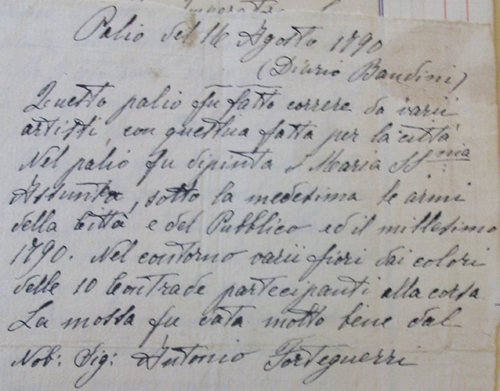 Palio del 16 Agosto 1790
(Diario Bandini)
Questo palio fu fatto correre da varii
artisti, con questua fatta per la città
Nel palio fu dipinta Maria SS.ma
Assunta, sotto la medesima le armi
della Città e del Pubblico ed il millesimo
1790. Nel contorno varii fiori dai colori
delle 10 Contrade partecipanti alla corsa
La mossa fu data molto bene dal
Nob: Sig: Antonio Forteguerri